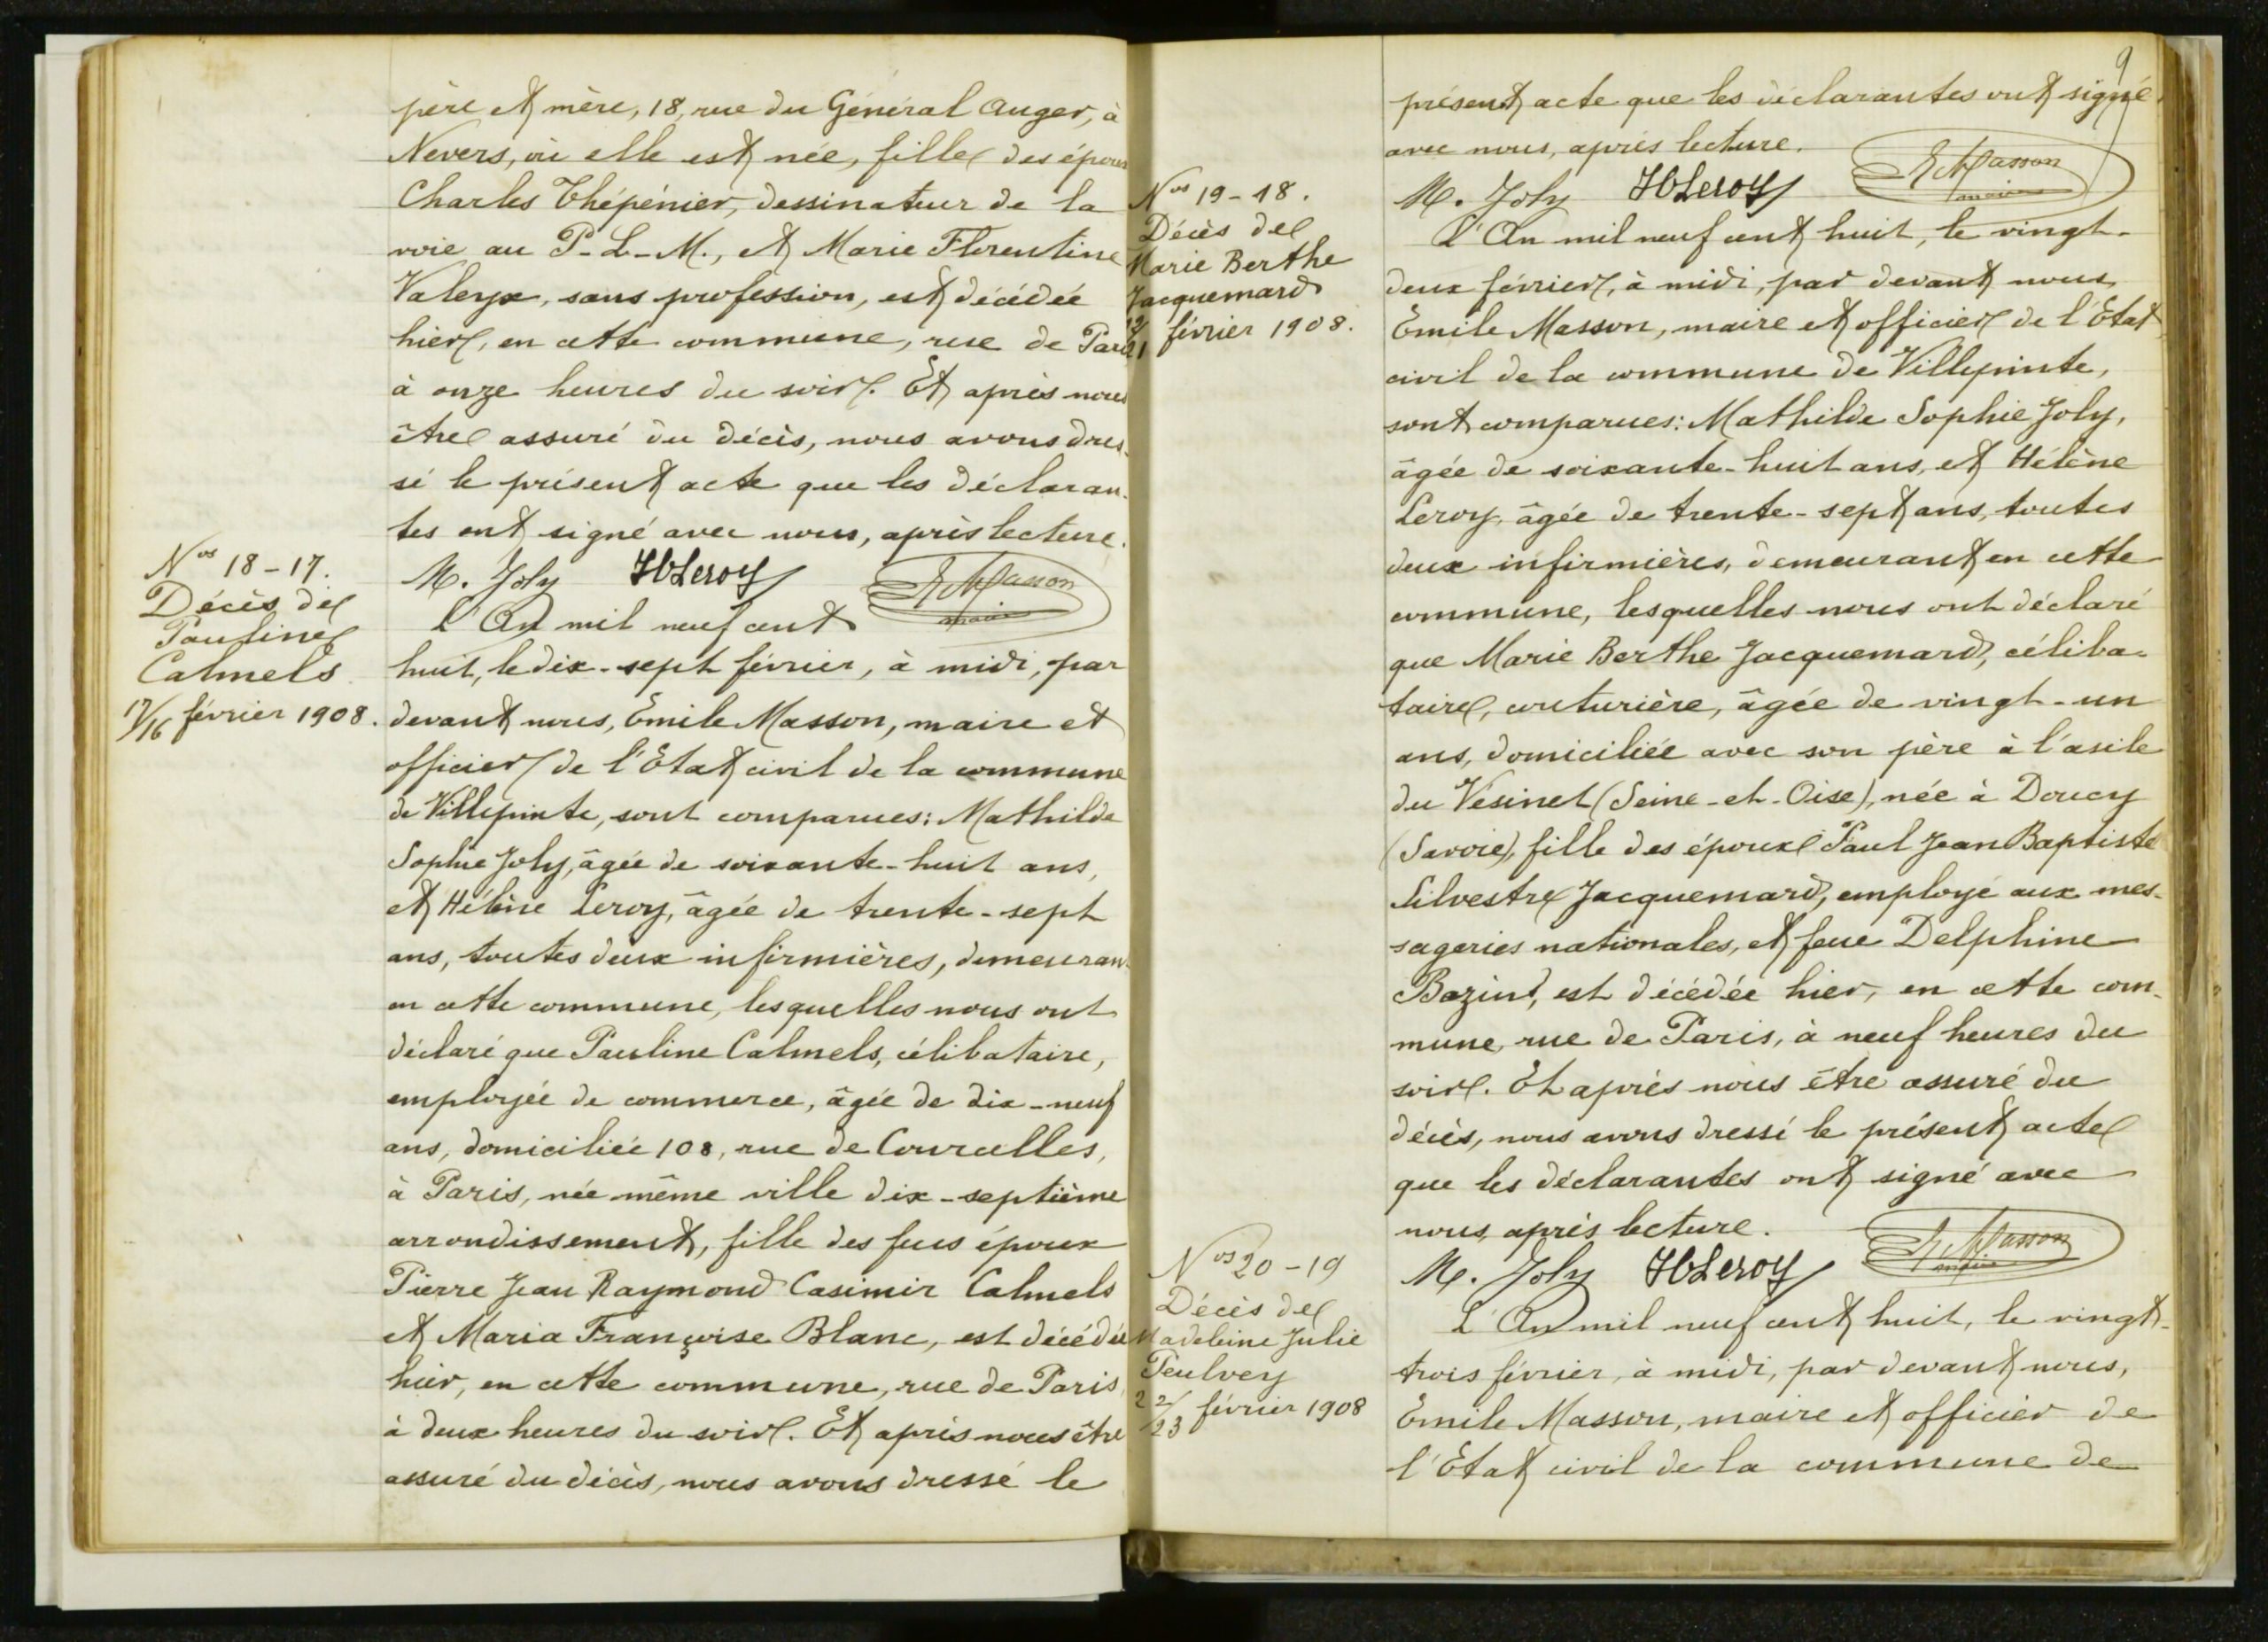 père et mère, 18, rue du Général Auger, à
Nevers, où elle est née, fille des époux
Charles Thépénier, dessinateur de la
voie au P-L-M., et Marie Florentine
Valeyx, sans profession, est décédée
hier, en cette commune, rue de Paris
à onze heures du soir. Et après nous
être assuré du décès, nous avons dres-
sé le présent acte que les déclaran-
tes ont signé avec nous, après lecture.
M. Joly HLeroy E Masson
maire
Nos 18-17.
Décès de
Pauline
Calmels
17/16 février 1908.
L'An mil neuf cent
huit, le dix-sept février, à midi, par
devant nous, Emile Masson, maire et
officier de l'Etat civil de la commune
de Villepinte, sont comparues: Mathilde
Sophie Joly, âgée de soixante-huit ans,
et Hélène Leroy, âgée de trente-sept
ans, toutes deux infirmières, demeurant
en cette commune, lesquelles nous ont
déclaré que Pauline Calmels, célibataire,
employée de commerce, âgée de dix-neuf
ans, domiciliée 108, rue de Courcelles,
à Paris, née même ville dix-septième
arrondissement, fille des feus époux
Pierre Jean Raymond Casimir Calmels
et Maria Françoise Blanc, est décédée
hier, en cette commune, rue de Paris,
à deux heures du soir. Et après nous être
assuré du décès, nous avons dressé le
9
présent acte que les déclarantes ont signé
avec nous, après lecture.
M. Joly HLeroy E Masson
maire
Nos 19-18.
Décès de
Marie Berthe
Jacquemard
21 février 1908.
L'An mil neuf cent huit, le vingt-
deux février, à midi, par devant nous,
Emile Masson, maire et officier de l'Etat
civil de la commune de Villepinte,
sont comparues: Mathilde Sophie Joly,
âgée de soixante-huit ans, et Hélène
Leroy, âgée de trente-sept ans, toutes
deux infirmières, demeurant en cette
commune, lesquelles nous ont déclaré
que Marie Berthe Jacquemard, céliba-
taire, couturière, âgée de vingt-un
ans, domiciliée avec son père à l'asile
du Vésinet (Seine-et-Oise), née à Doucy
(Savoie), fille des époux Paul Jean Baptiste
Silvestre Jacquemard, employé aux mes-
sageries nationales, et feue Delphine
Bazin, est décédée hier, en cette com-
mune, rue de Paris, à neuf heures du
soir. Et après nous être assuré du
décès, nous avons dressé le présent acte
que les déclarantes ont signé avec
nous, après lecture.
M. Joly HLeroy E Masson
maire
Nos 20-19
Décès de
Madeleine Julie
Peulvey
22/23 février 1908
L'An mil neuf cent huit, le vingt-
trois février, à midi, par devant nous,
Emile Masson, maire et officier de
l'Etat civil de la commune de